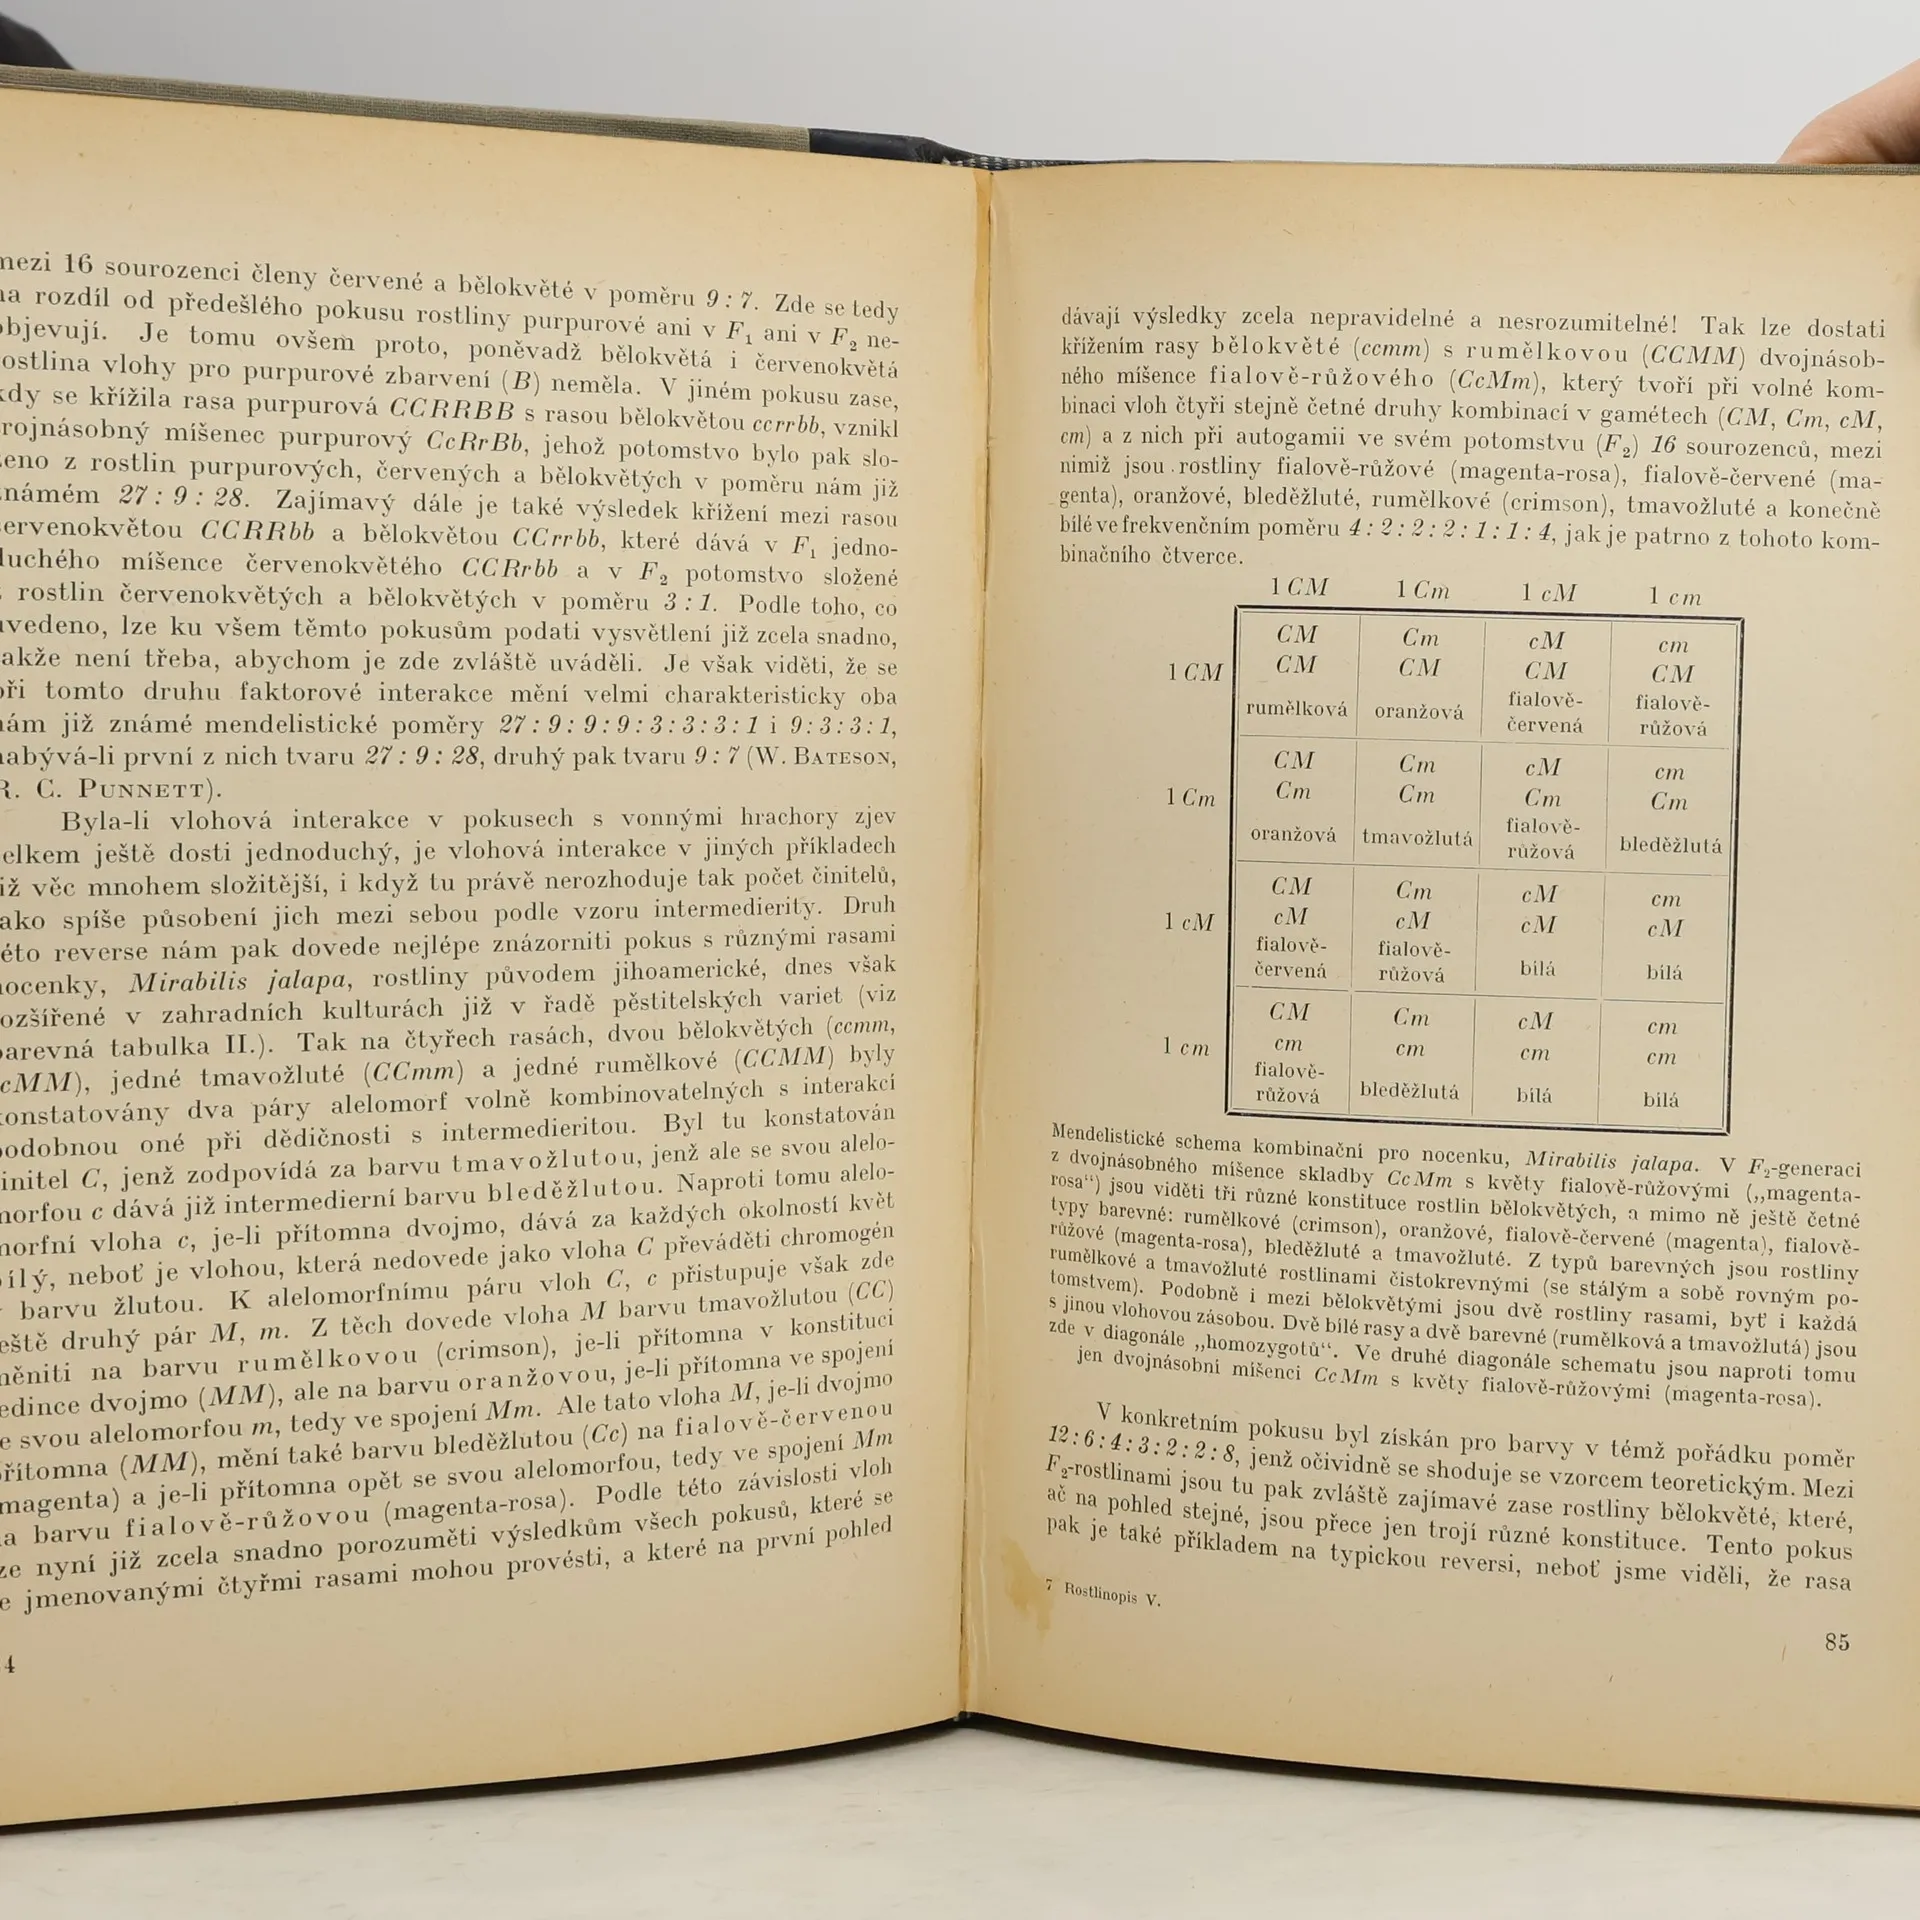 mezi 16 sourozenci členy červené a bělokvěté v poměru 9 : 7. Zde se tedy
na rozdíl od předešlého pokusu rostliny purpurové ani v F₁ ani v F₂ ne-
objevují. Je tomu ovšem proto, poněvadž bělokvětá i červenokvětá
rostlina vlohy pro purpurové zbarvení (B) neměla. V jiném pokusu zase,
kdy se křížila rasa purpurová CCRRBB s rasou bělokvětou ccrrbb, vznikl
trojnásobný míšenec purpurový CcRrBb, jehož potomstvo bylo pak slo-
ženo z rostlin purpurových, červených a bělokvětých v poměru nám již
známém 27 : 9 : 28. Zajímavý dále je také výsledek křížení mezi rasou
červenokvětou CCRRbb a bělokvětou CCrrbb, které dává v F₁ jedno-
duchého míšence červenokvětého CCRrbb a v F₂ potomstvo složené
z rostlin červenokvětých a bělokvětých v poměru 3 : 1. Podle toho, co
uvedeno, lze ku všem těmto pokusům podati vysvětlení již zcela snadno,
takže není třeba, abychom je zde zvláště uváděli. Je však viděti, že se
při tomto druhu faktorové interakce mění velmi charakteristicky oba
nám již známé mendelistické poměry 27 : 9 : 9 : 9 : 3 : 3 : 3 : 1 i 9 : 3 : 3 : 1,
nabývá-li první z nich tvaru 27 : 9 : 28, druhý pak tvaru 9 : 7 (W. BATESON,
R. C. PUNNETT).
Byla-li vlohová interakce v pokusech s vonnými hrachory zjev
celkem ještě dosti jednoduchý, je vlohová interakce v jiných příkladech
již věc mnohem složitější, i když tu právě nerozhoduje tak počet činitelů,
jako spíše působení jich mezi sebou podle vzoru intermedierity. Druh
této reverse nám pak dovede nejlépe znázorniti pokus s různými rasami
nocenky, Mirabilis jalapa, rostliny původem jihoamerické, dnes však
rozšířené v zahradních kulturách již v řadě pěstitelských variet (viz
barevná tabulka II.). Tak na čtyřech rasách, dvou bělokvětých (ccmm,
ccMM), jedné tmavožluté (CCmm) a jedné rumělkové (CCMM) byly
konstatovány dva páry alelomorf volně kombinovatelných s interakcí
podobnou oné při dědičnosti s intermedieritou. Byl tu konstatován
činitel C, jenž zodpovídá za barvu tmavožlutou, jenž ale se svou alelo-
morfou c dává již intermedierní barvu bleděžlutou. Naproti tomu alelo-
morfní vloha c, je-li přítomna dvojmo, dává za každých okolností květ
bílý, neboť je vlohou, která nedovede jako vloha C převáděti chromogén
v barvu žlutou. K alelomorfnímu páru vloh C, c přistupuje však zde
ještě druhý pár M, m. Z těch dovede vloha M barvu tmavožlutou (CC)
měniti na barvu rumělkovou (crimson), je-li přítomna v konstituci
jedince dvojmo (MM), ale na barvu oranžovou, je-li přítomna ve spojení
se svou alelomorfou m, tedy ve spojení Mm. Ale tato vloha M, je-li dvojmo
přítomna (MM), mění také barvu bleděžlutou (Cc) na fialově-červenou
(magenta) a je-li přítomna opět se svou alelomorfou, tedy ve spojení Mm
na barvu fialově-růžovou (magenta-rosa). Podle této závislosti vloh
lze nyní již zcela snadno porozuměti výsledkům všech pokusů, které se
se jmenovanými čtyřmi rasami mohou provésti, a které na první pohled
4
dávají výsledky zcela nepravidelné a nesrozumitelné! Tak lze dostati
křížením rasy bělokvěté (ccmm) s rumělkovou (CCMM) dvojnásob-
ného míšence fialově-růžového (CcMm), který tvoří při volné kom-
binaci vloh čtyři stejně četné druhy kombinací v gamétech (CM, Cm, cM,
cm) a z nich při autogamii ve svém potomstvu (F₂) 16 sourozenců, mezi
nimiž jsou rostliny fialově-růžové (magenta-rosa), fialově-červené (ma-
genta), oranžové, bleděžluté, rumělkové (crimson), tmavožluté a konečně
bílé ve frekvenčním poměru 4 : 2 : 2 : 2 : 1 : 1 : 4, jak je patrno z tohoto kom-
binačního čtverce.
1 CM 1 Cm 1 cM 1 cm
CM Cm cM cm
1 CM CM CM CM CM
rumělková oranžová fialově- fialově-
červená růžová
CM Cm cM cm
1 Cm Cm Cm Cm Cm
oranžová tmavožlutá fialově- bleděžlutá
růžová
CM Cm cM cm
1 cM cM cM cM cM
fialově- fialově-
červená růžová bílá bílá
CM Cm cM cm
1 cm cm cm cm cm
fialově-
růžová bleděžlutá bílá bílá
Mendelistické schema kombinační pro nocenku, Mirabilis jalapa. V F₂-generaci
z dvojnásobného míšence skladby CcMm s květy fialově-růžovými („magenta-
rosa“) jsou viděti tři různé konstituce rostlin bělokvětých, a mimo ně ještě četné
typy barevné: rumělkové (crimson), oranžové, fialově-červené (magenta), fialově-
růžové (magenta-rosa), bleděžluté a tmavožluté. Z typů barevných jsou rostliny
rumělkové a tmavožluté rostlinami čistokrevnými (se stálým a sobě rovným po-
tomstvem). Podobně i mezi bělokvětými jsou dvě rostliny rasami, byť i každá
s jinou vlohovou zásobou. Dvě bílé rasy a dvě barevné (rumělková a tmavožlutá) jsou
zde v diagonále „homozygotů“. Ve druhé diagonále schematu jsou naproti tomu
jen dvojnásobní míšenci CcMm s květy fialově-růžovými (magenta-rosa).
V konkretním pokusu byl získán pro barvy v témž pořádku poměr
12 : 6 : 4 : 3 : 2 : 2 : 8, jenž očividně se shoduje se vzorcem teoretickým. Mezi
F₂-rostlinami jsou tu pak zvláště zajímavé zase rostliny bělokvěté, které,
ač na pohled stejné, jsou přece jen trojí různé konstituce. Tento pokus
pak je také příkladem na typickou reversi, neboť jsme viděli, že rasa
7 Rostlinopis V.
85